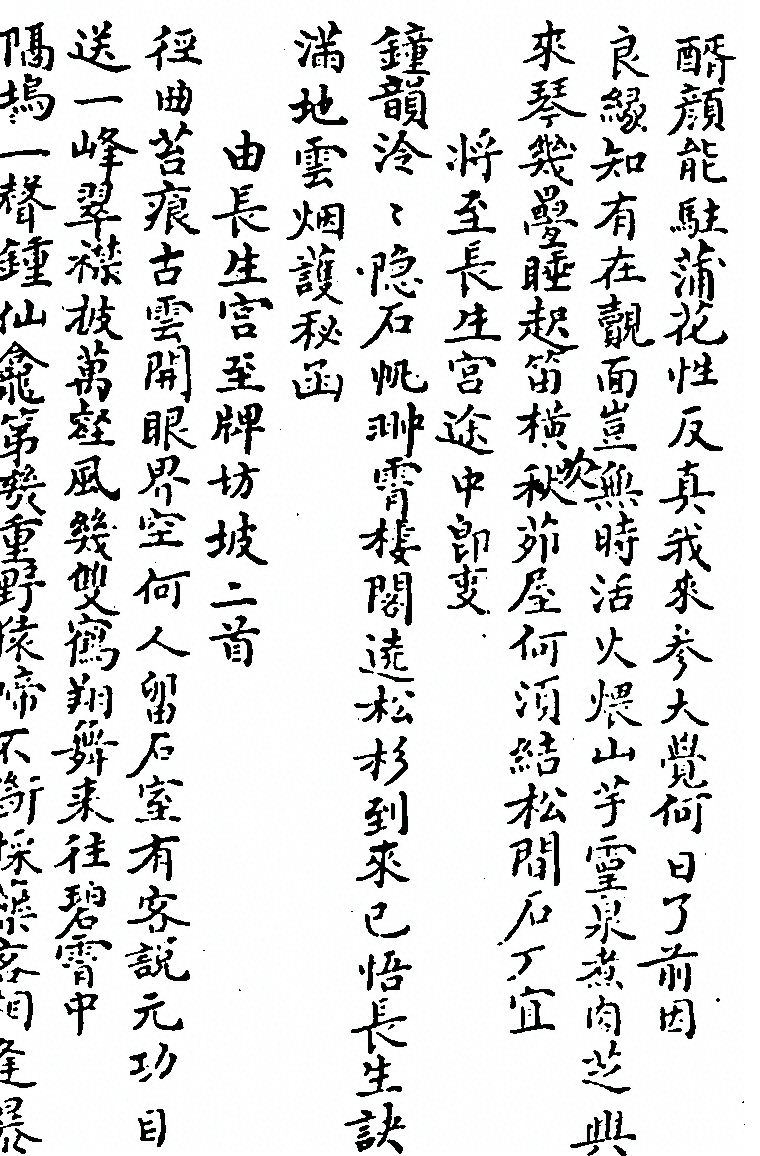 醑顔能駐蒲花性反真我來參大覺何日了前因
良緣知有在覿面豈無時活火煨山芋靈泉煮肉芝興
來琴幾疊睡起笛橫吹秋茆屋何須結松間石丁宜
將至長生宮途中即事
鐘韻泠〻隐石帆翀霄樓閣遶松杉到來已悟長生訣
滿地雲烟護秘函
由長生宮至牌坊坡二首
徑曲苔痕古雲開眼界空何人留石室有客説元功目
送一峰翠襟披萬壑風幾雙鶴翔舞來往碧霄中
隔塢一聲鍾仙龕第幾重野猿啼不斷採藥客相逢瀑